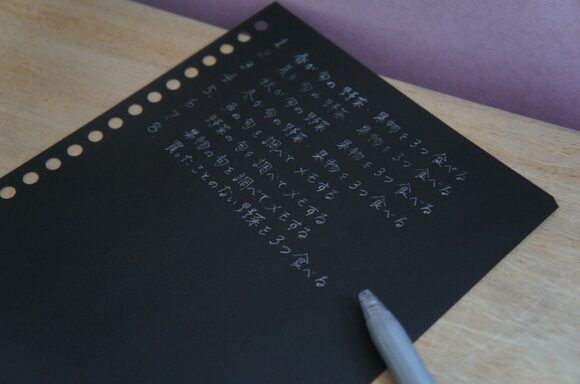 1 春が旬の野菜・果物を3つ食べる
2 夏が旬の野菜・果物を3つ食べる
3 秋が旬の野菜・果物を3つ食べる
4 冬が旬の野菜・果物を3つ食べる
5 の旬を調べてメモする
6 野菜の旬を調べてメモする
7 果物の旬を調べてメモする
8 買ったことのない野菜を3つ食べる